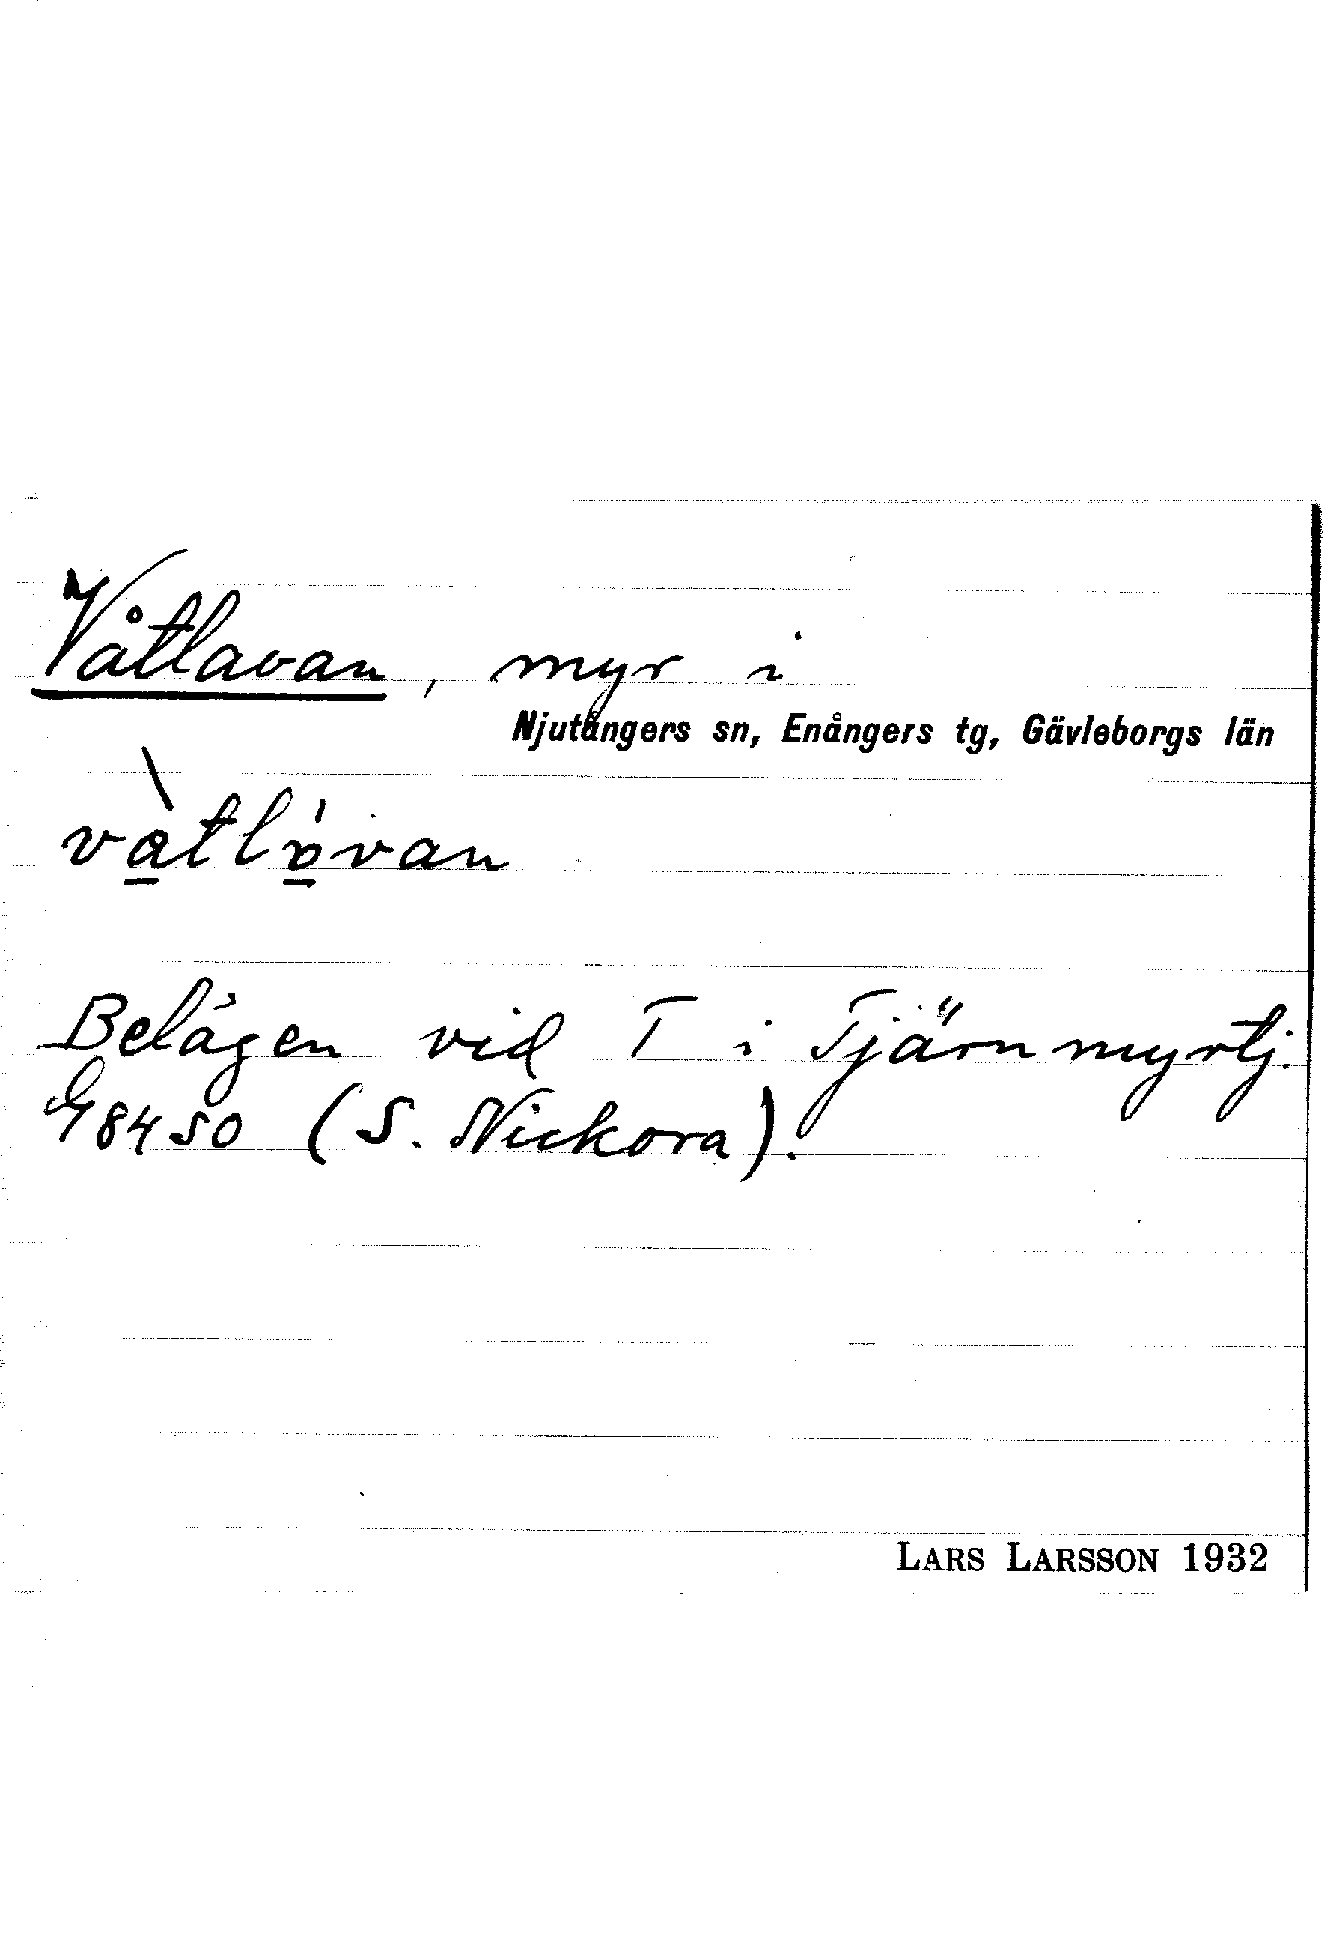 Våtlavan, myr i
Njutångers sn, Enångers tg, Gävleborgs län
vàtlòvan
Belägen vid T i Tjärnmyrtj.
G8450 (S. Nickora).
LARS LARSSON 1932